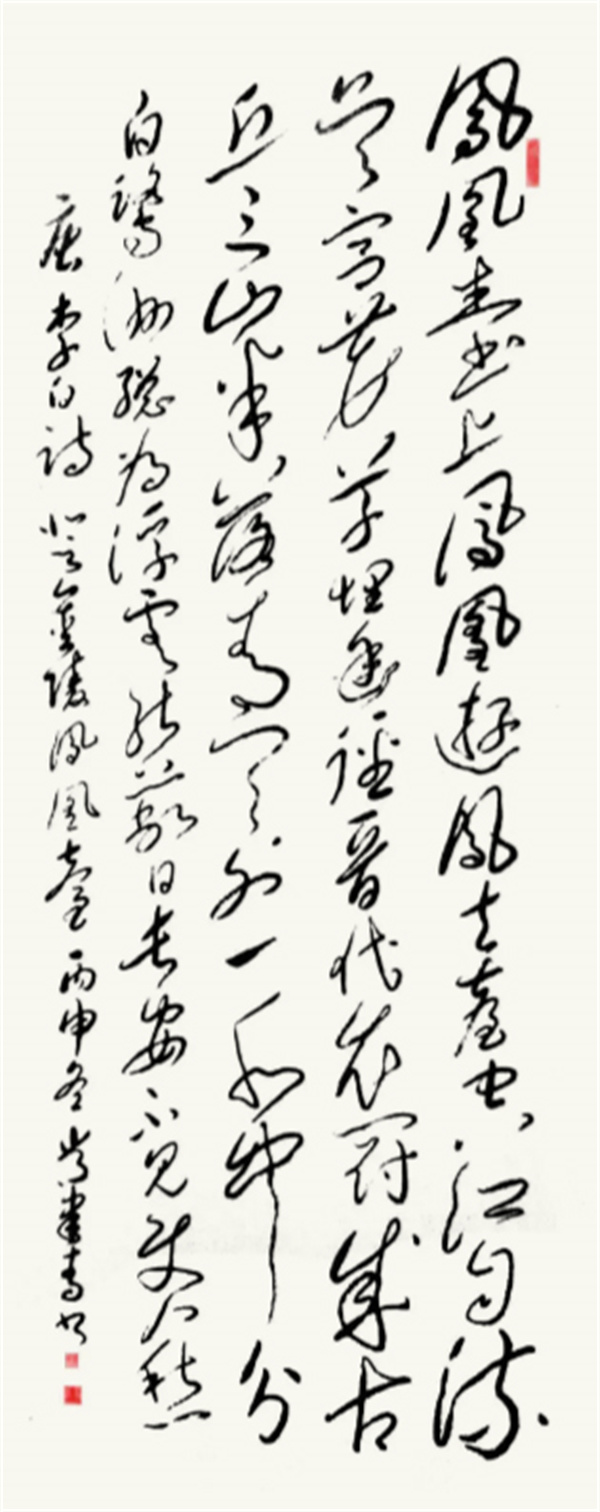 鳳凰臺上鳳凰遊鳳去臺空江自流
吳宮花草埋幽徑晉代衣冠成古
丘三山半落青天外一水中分
白鷺洲總為浮雲能蔽日長安不見使人愁
唐李白詩登金陵鳳凰臺丙申冬